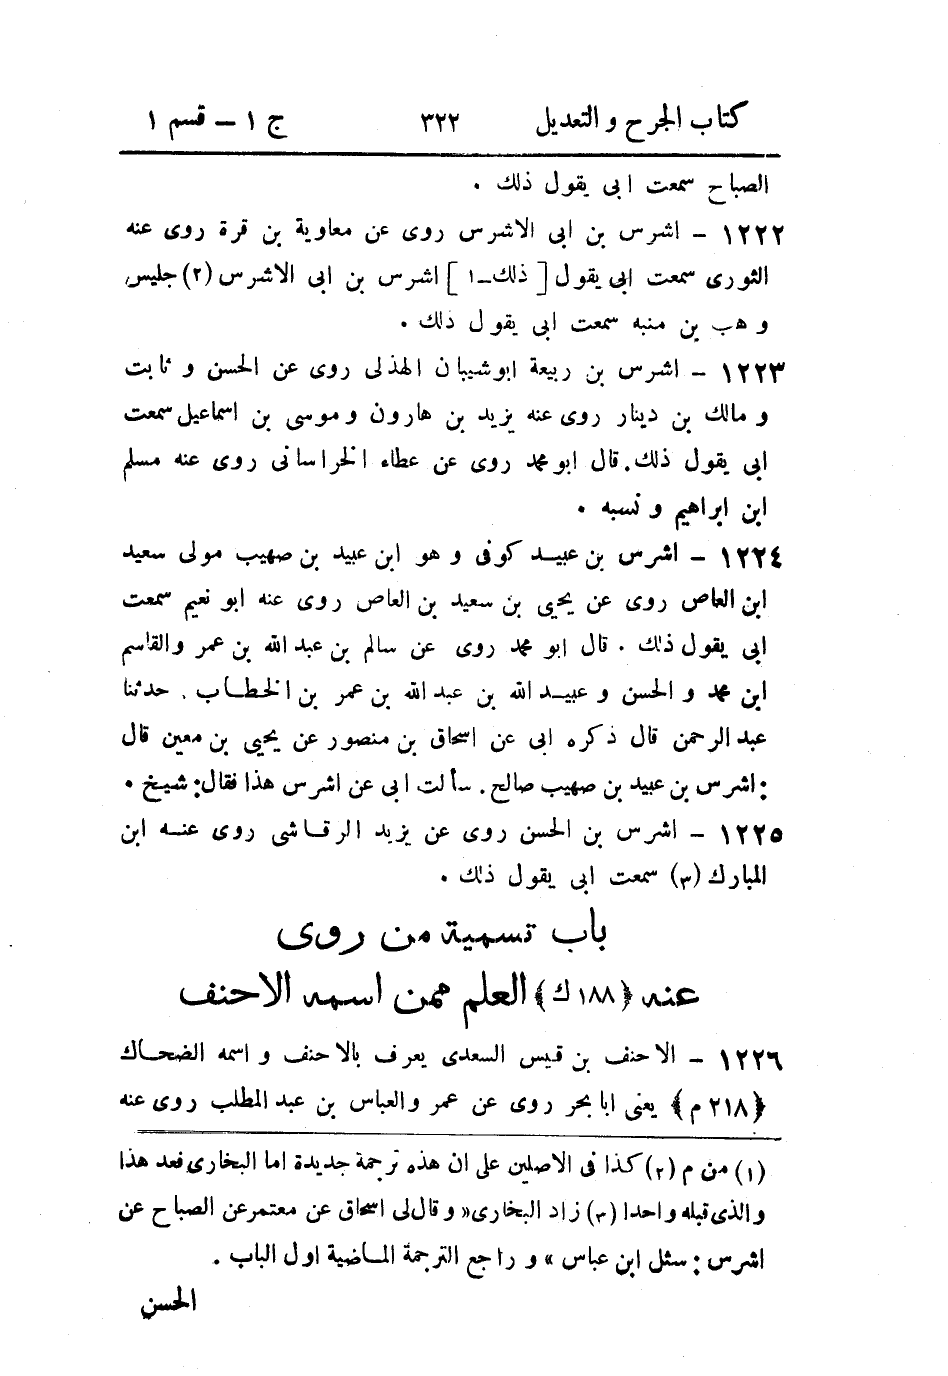 كتاب الجرح و التعديل ٣٢٢ ج ١ – قسم ١
الصباح سمعت ابى يقول ذلك .
١٢٢٢ – اشرس بن ابى الاشرس روى عن معاوية بن قرة روى عنه
الثورى سمعت ابى يقول [ ذلك ـ ١ ] اشرس بن ابى الاشرس (٢) جليس
و هب بن منبه سمعت ابى يقول ذلك .
١٢٢٣ – اشرس بن ربيعة ابو شيبان الهذلى روى عن الحسن و ثابت
و مالك بن دينار روى عنه يزيد بن هارون وموسى بن اسماعيل سمعت
ابى يقول ذلك . قال ابو محمد روى عن عطاء الخراسانى روى عنه مسلم
ابن ابراهيم و نسبه .
١٢٢٤ – اشرس بن عبيد كوفى و هو ابن عبيد بن صهيب مولى سعيد
ابن العاص روى عن يحيى بن سعيد بن العاص روى عنه ابو نعيم سمعت
ابى يقول ذلك . قال ابو محمد روى عن سالم بن عبد الله بن عمر والقاسم
ابن محمد و الحسن و عبيد الله بن عبد الله بن عمر بن الخطاب . حدثنا
عبد الرحمن قال ذكره ابى عن اسحاق بن منصور عن يحيى بن معين قال
: اشرس بن عبيد بن صهيب صالح . سألت ابى عن اشرس هذا فقال : شيخ .
١٢٢٥ – اشرس بن الحسن روى عن يزيد الرقاشى روى عنه ابن
المبارك (٣) سمعت ابى يقول ذلك .
باب تسمية من روى
عنه ﴿١٨٨ ك﴾ العلم ممن اسمه الاحنف
١٢٢٦ – الاحنف بن قيس السعدى يعرف بالاحنف و اسمه الضحاك
﴿٢١٨ م﴾ يعنى ابا بحر روى عن عمر والعباس بن عبد المطلب روى عنه
(١) من م (٢) كذا فى الاصلين على ان هذه ترجمة جديدة اما البخارى فعد هذا
والذى قبله واحدا (٣) زاد البخارى « و قال لى اسحاق عن معتمر عن الصباح عن
اشرس : سئل ابن عباس » و راجع الترجمة الماضية اول الباب .
الحسن